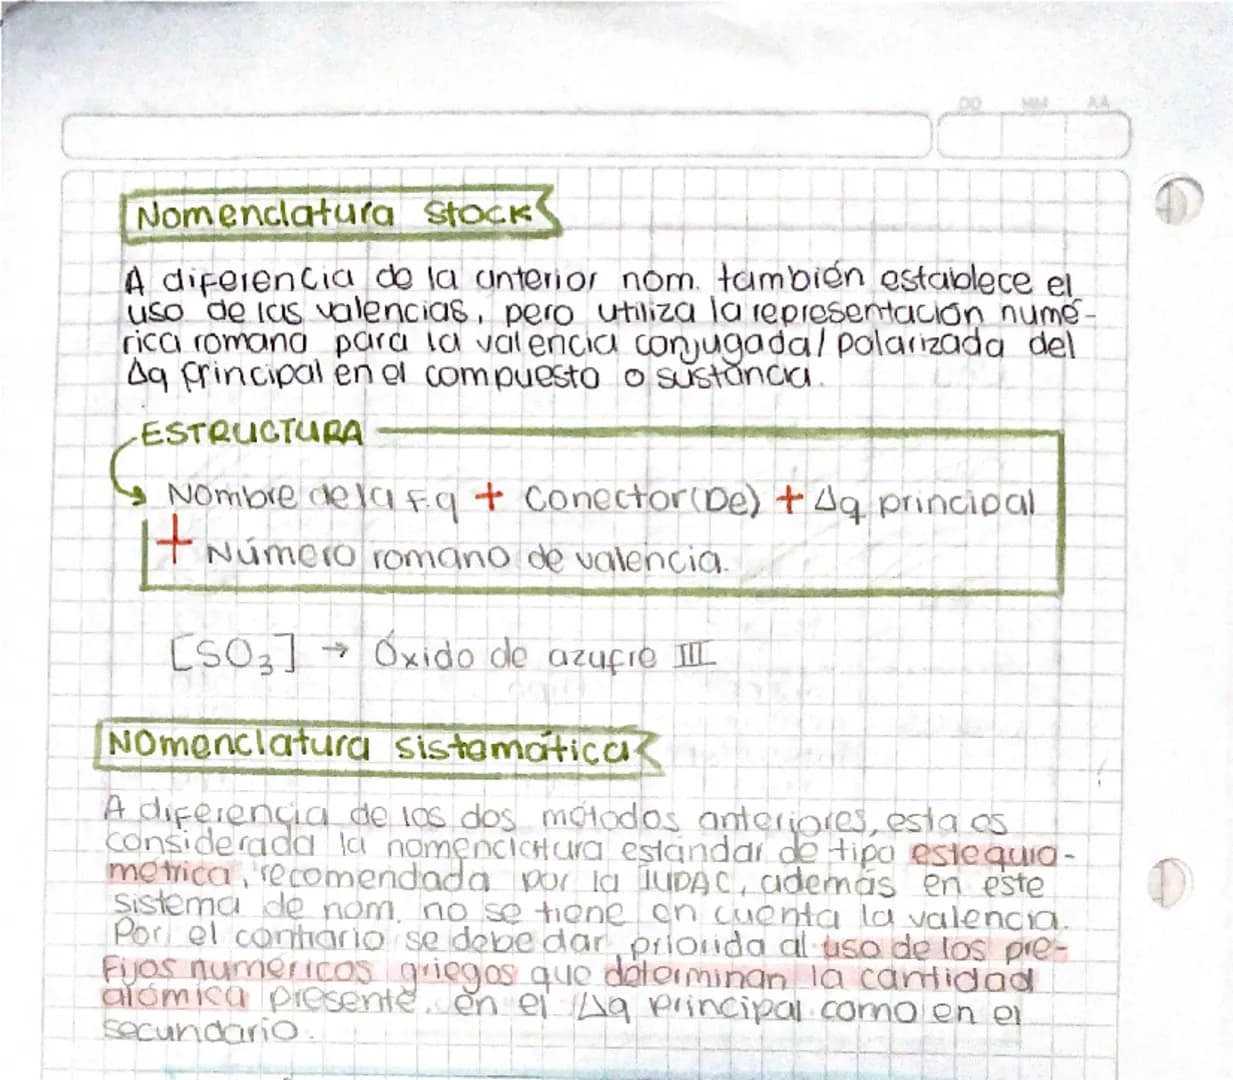 DD MM AA
Nomenclatura Stock
A diferencia de la anterior nom. también establece el
uso de las valencias, pero utiliza la representación numé-
rica romana para la valencia conjugada/polarizada del
Δq principal en el compuesto o sustancia.
ESTRUCTURA
Nombre de la f.q + Conector(De) + Δq principal
+ Número romano de valencia.
[SO₃] → Óxido de azufre III
Nomenclatura sistemática
A diferencia de los dos métodos anteriores, esta es
considerada la nomenclatura estándar de tipo estequio-
métrica, recomendada por la IUPAC, además en este
sistema de nom. no se tiene en cuenta la valencia.
Por el contrario se debe dar priorida al uso de los pre-
fijos numéricos griegos que determinan la cantidad
atómica presente. en el Δq principal como en el
secundario.